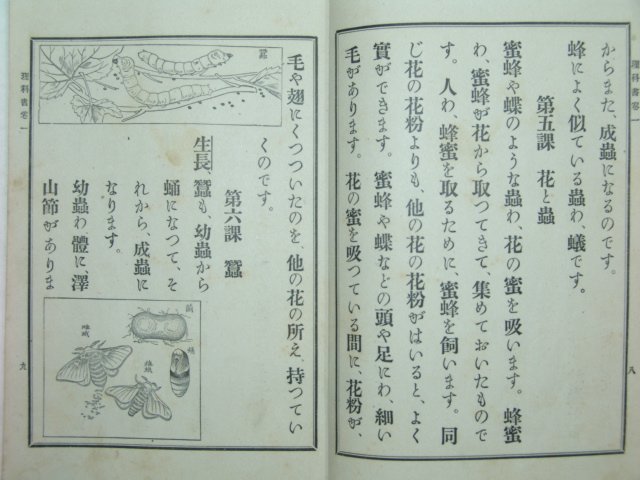 理科書卷一
からまた、成蟲になるのです。
蜂によく似ている蟲わ、蟻です。
第五課　花と蟲
蜜蜂や蝶のような蟲わ、花の蜜を吸います。蜂蜜
わ、蜜蜂が花から取つてきて、集めておいたもので
す。人わ、蜂蜜を取るために、蜜蜂を飼います。同
じ花の花粉よりも、他の花の花粉がはいると、よく
實ができます。蜜蜂や蝶などの頭や足にわ、細い
毛があります。花の蜜を吸つている間に、花粉が、
八
毛や翅にくつついたのを、他の花の所え、持つてい
くのです。
第六課　蠶
生長、蠶も、幼蟲から
蛹になつて、そ
れから、成蟲に
なります。
幼蟲わ體に澤
山節がありま
蠶
繭
蛹
雌蛾
雄蛾
理科書卷一
九